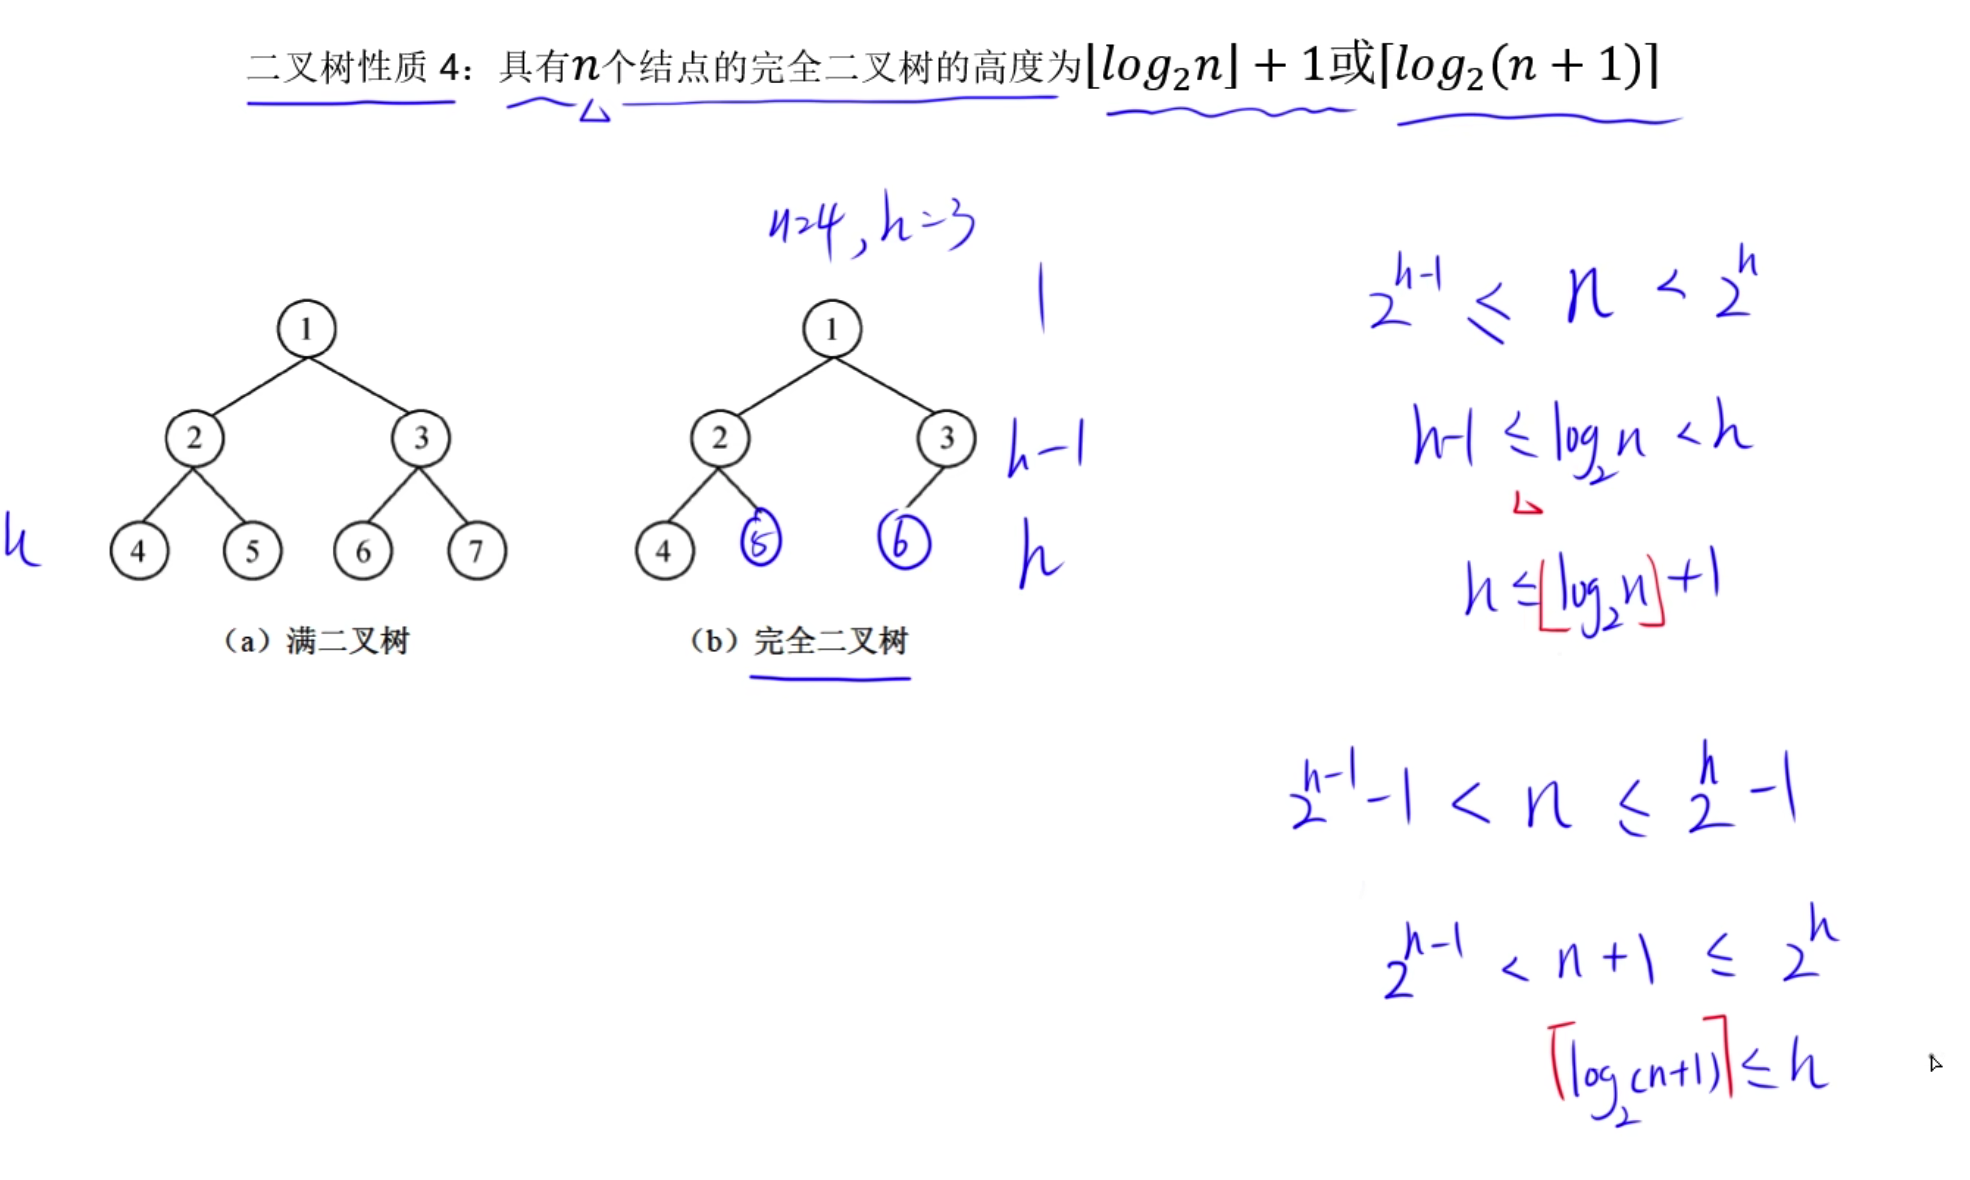 二叉树性质 4：具有n个结点的完全二叉树的高度为⌊log₂n⌋ + 1或⌈log₂(n + 1)⌉
n=4, h=3
1
1
1
2
3
2
3
h-1
4
5
6
7
4
5
6
h
h
（a）满二叉树
（b）完全二叉树
2^(h-1) ≤ n < 2^h
h-1 ≤ log₂n < h
h ≤ ⌊log₂n⌋ +1
2^(h-1) -1 < n ≤ 2^h -1
2^(h-1) < n+1 ≤ 2^h
⌈log₂(n+1)⌉ ≤ h